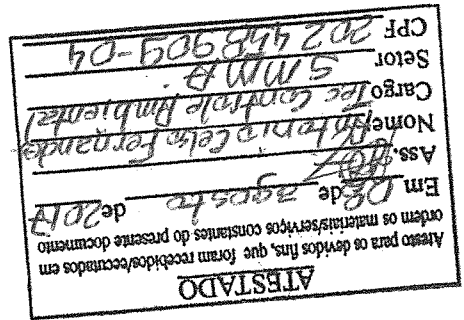 ATESTADO
Atesto para os devidos fins, que foram recebidos/executados em
ordem os materiais/serviços constantes do presente documento
Em 08 de agosto de 2017
Ass.
Nome Antonio Celso Fernandes
Cargo Tec Controle Ambiental
Setor SMMA.
CPF 202458909-04